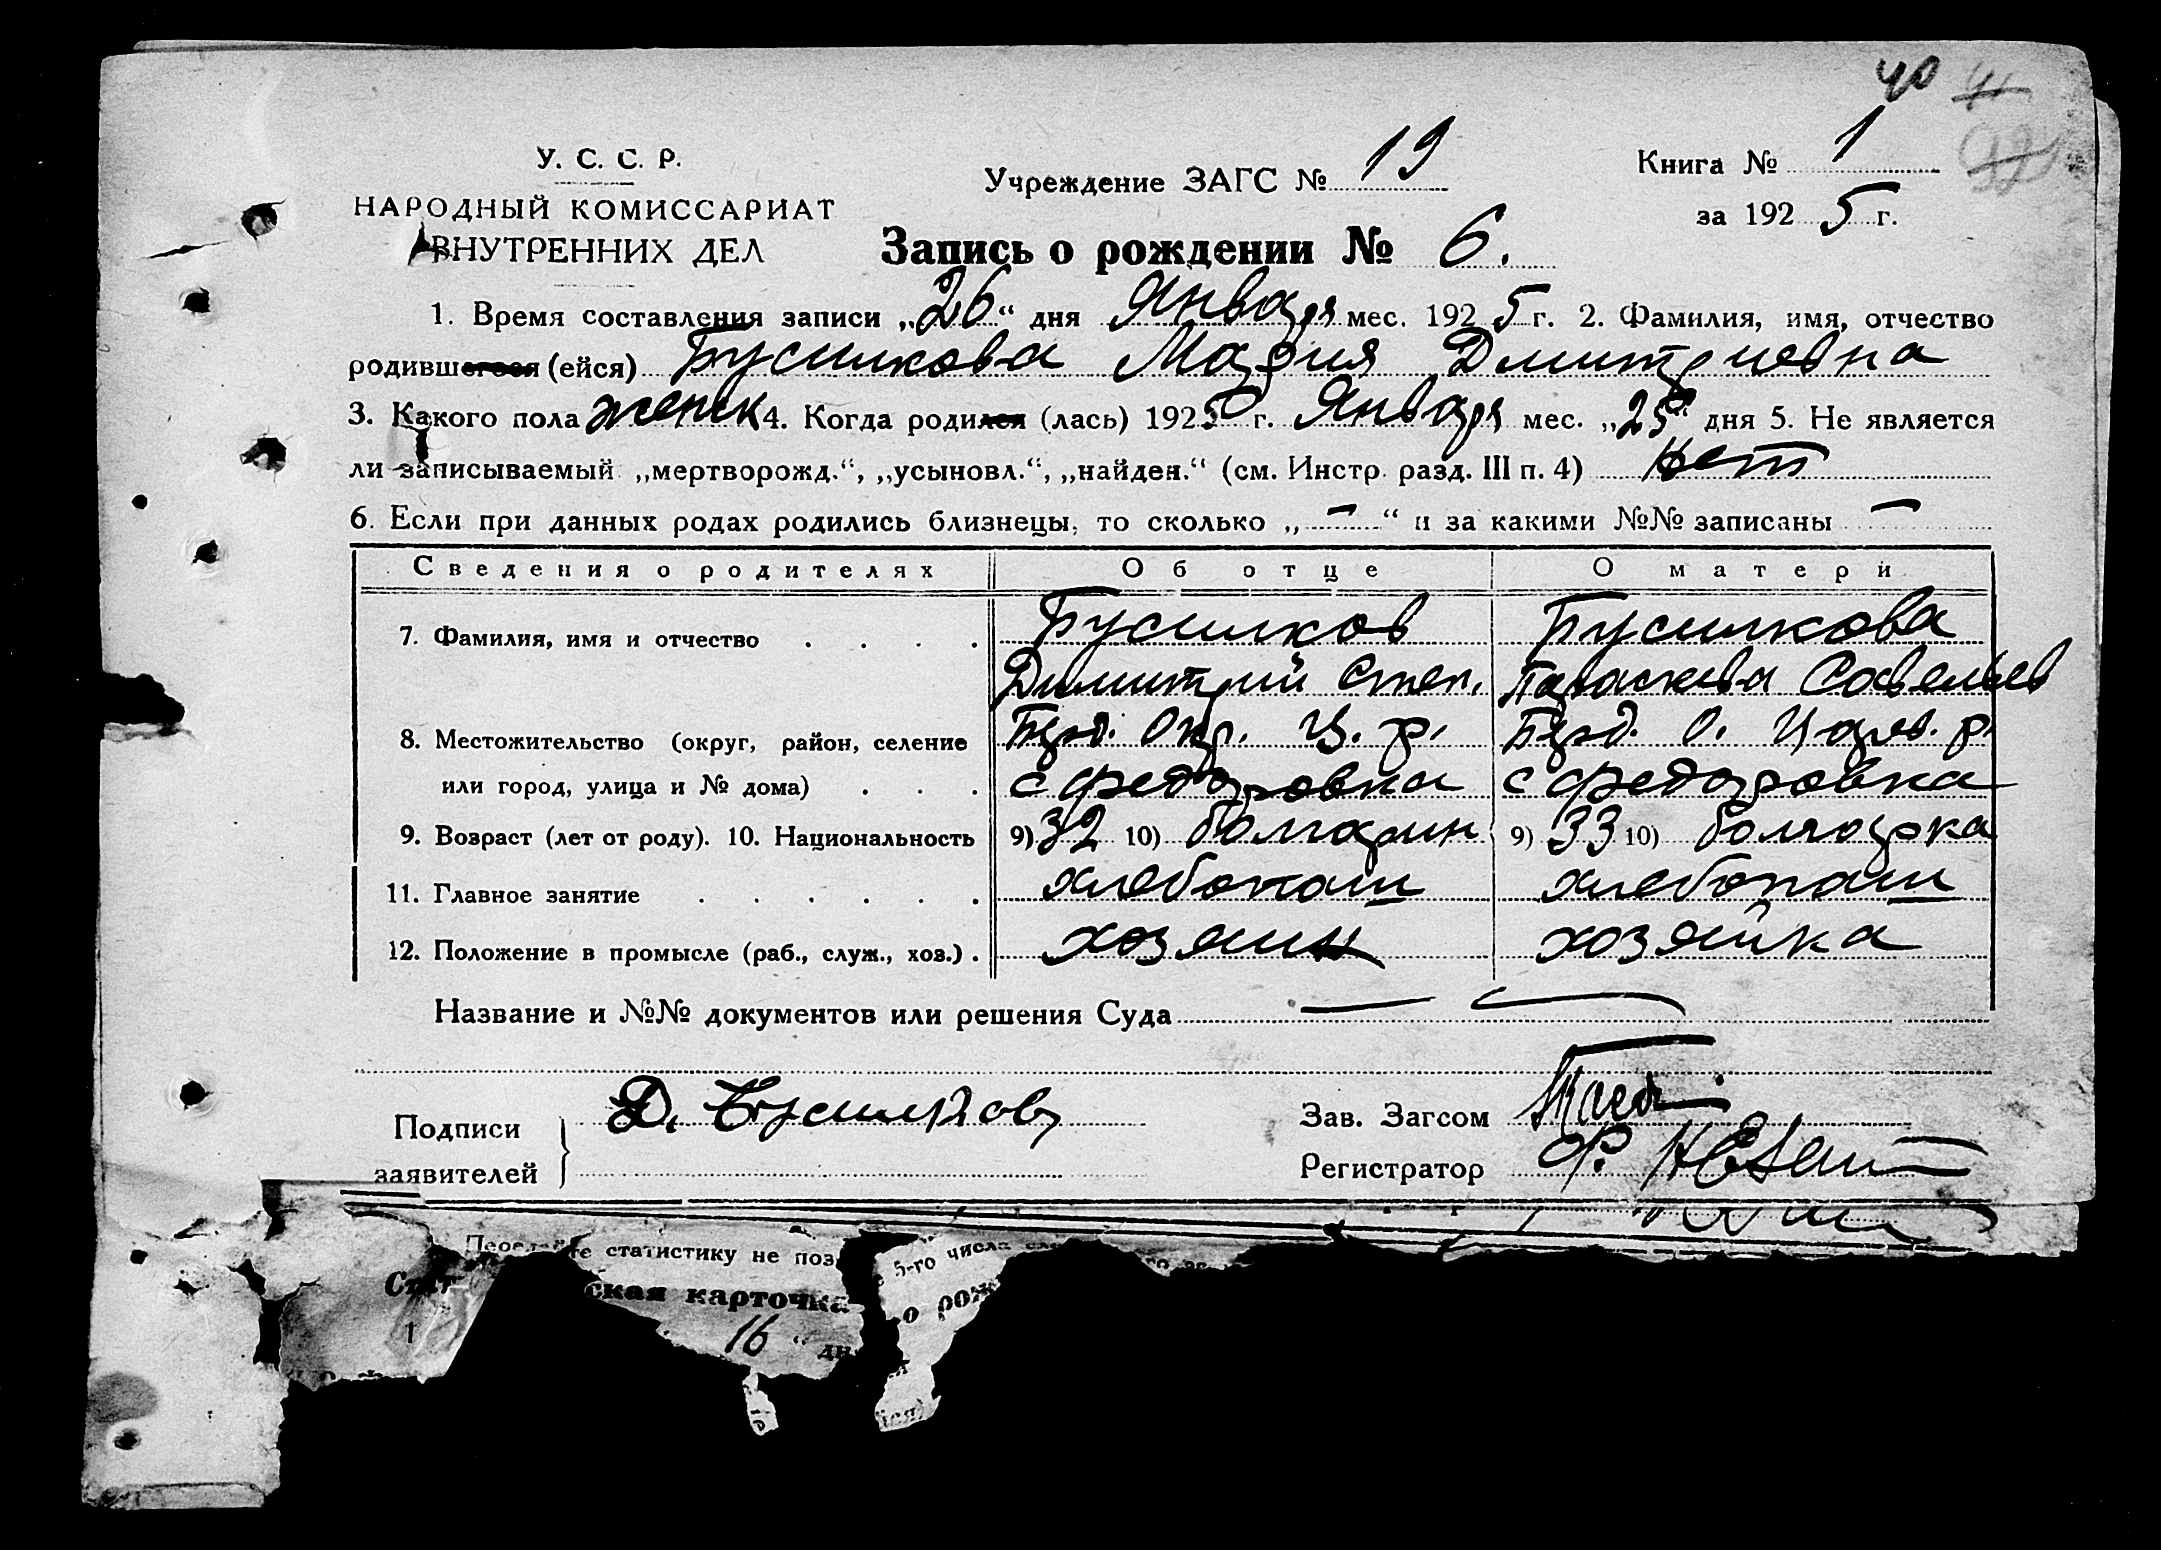 40
У. С. С. Р.
НАРОДНЫЙ КОМИССАРИАТ
ВНУТРЕННИХ ДЕЛ
Учреждение ЗАГС № 19
Книга № 1
за 1925 г.
Запись о рождении № 6.
1. Время составления записи „26“ дня Января мес. 1925 г. 2. Фамилия, имя, отчество
родившегося (ейся) Бусилкова Мария Дмитриевна
3. Какого пола женск 4. Когда родился (лась) 1925 г. Января мес. „25“ дня 5. Не является
ли записываемый „мертворожд.“, „усыновл.“, „найден.“ (см. Инстр. разд. III п. 4) Нет
6. Если при данных родах родились близнецы, то сколько „ — “ и за какими №№ записаны —
Сведения о родителях Об отце О матери
7. Фамилия, имя и отчество . . . . Бусилков Бусилкова
Димитрий Степ. Параскева Савельев
8. Местожительство (округ, район, селение Берд. Окр. Ц. р. Берд. О. Царев. р.
или город, улица и № дома) . . . с Федоровка с Федоровка
9. Возраст (лет от роду). 10. Национальность 9) 32 10) болгарин 9) 33 10) болгарка
11. Главное занятие . . . . . . хлебопаш хлебопаш
12. Положение в промысле (раб., служ., хоз.) . хозяин хозяйка
Название и №№ документов или решения Суда —
Подписи заявителей Д. Бусилков
Зав. Загсом
Регистратор Ф.
статистику не поз
5-го числа
ская карточка
о рож
1
16 “ дн